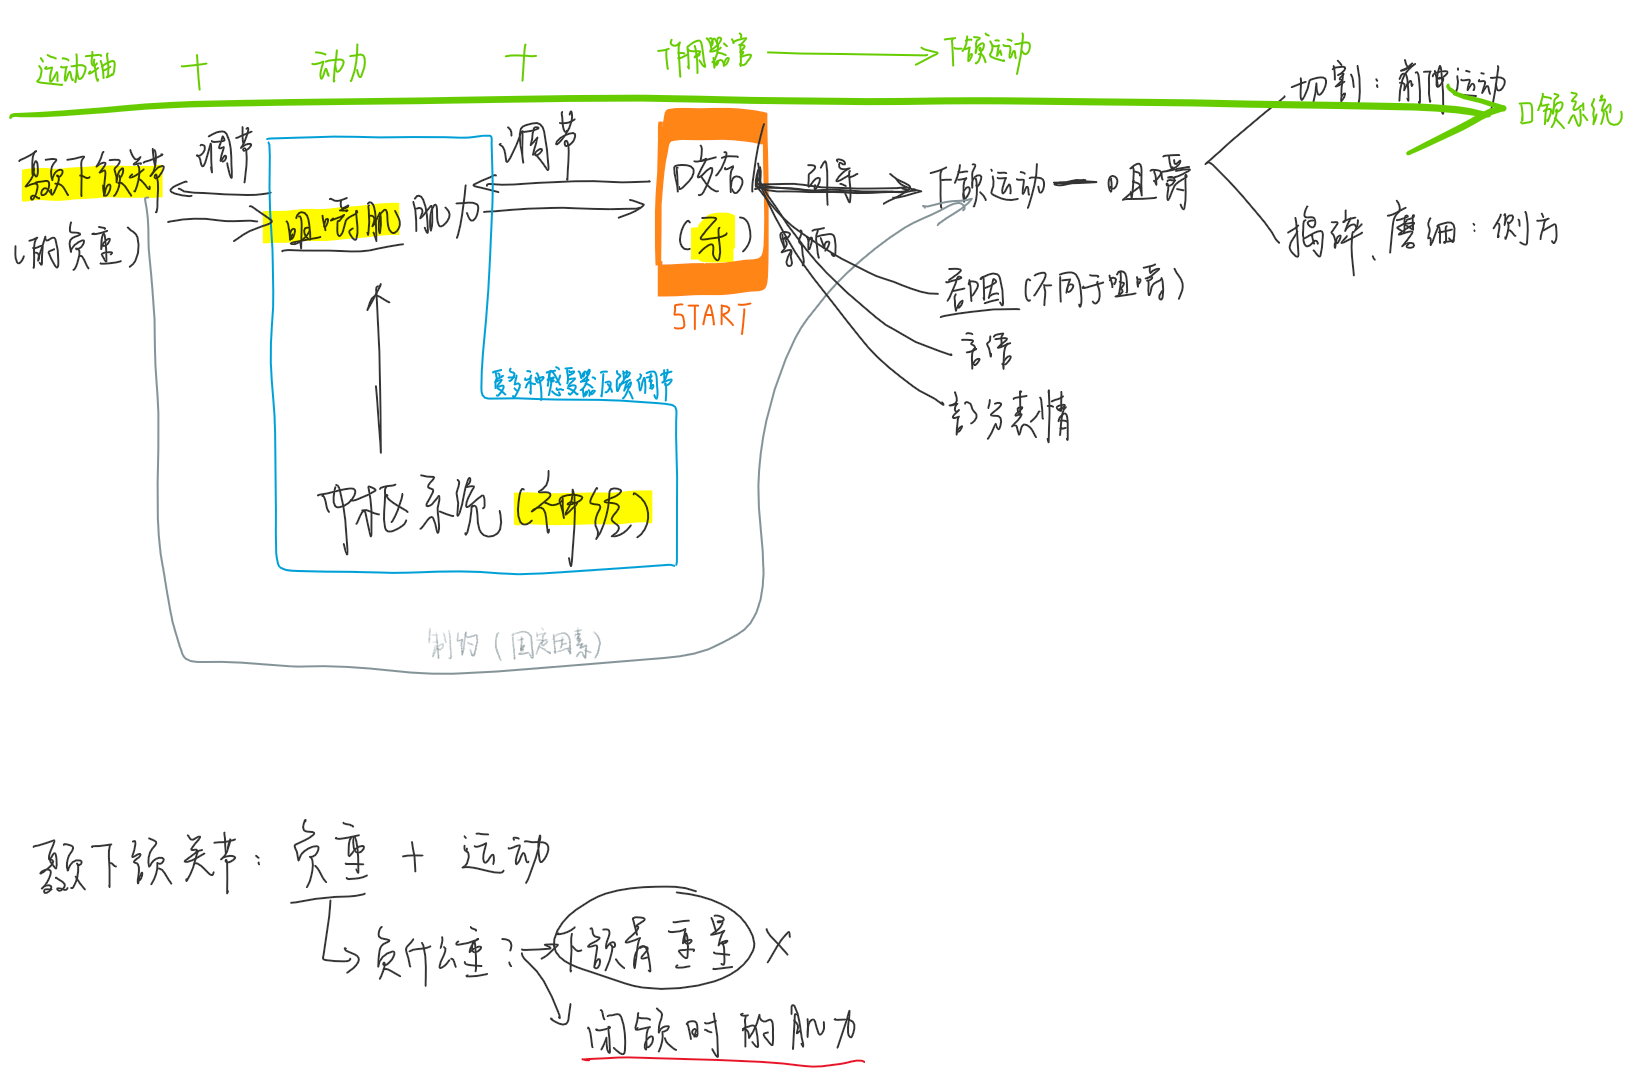 运动轴 + 动力 + 作用器官 → 下颌运动
口颌系统
颞下颌关节
(的负重)
调节
咀嚼肌 肌力
调节
咬合
(牙)
START
引导
影响
下颌运动 — 咀嚼
切割：前伸运动
捣碎、磨细：侧方
吞咽 (不同于咀嚼)
言语
部分表情
受多种感受器反馈调节
中枢系统 (神经)
制约 (固定因素)
颞下颌关节：负重 + 运动
负什么重？ → 下颌骨重量 ×
闭颌时的肌力